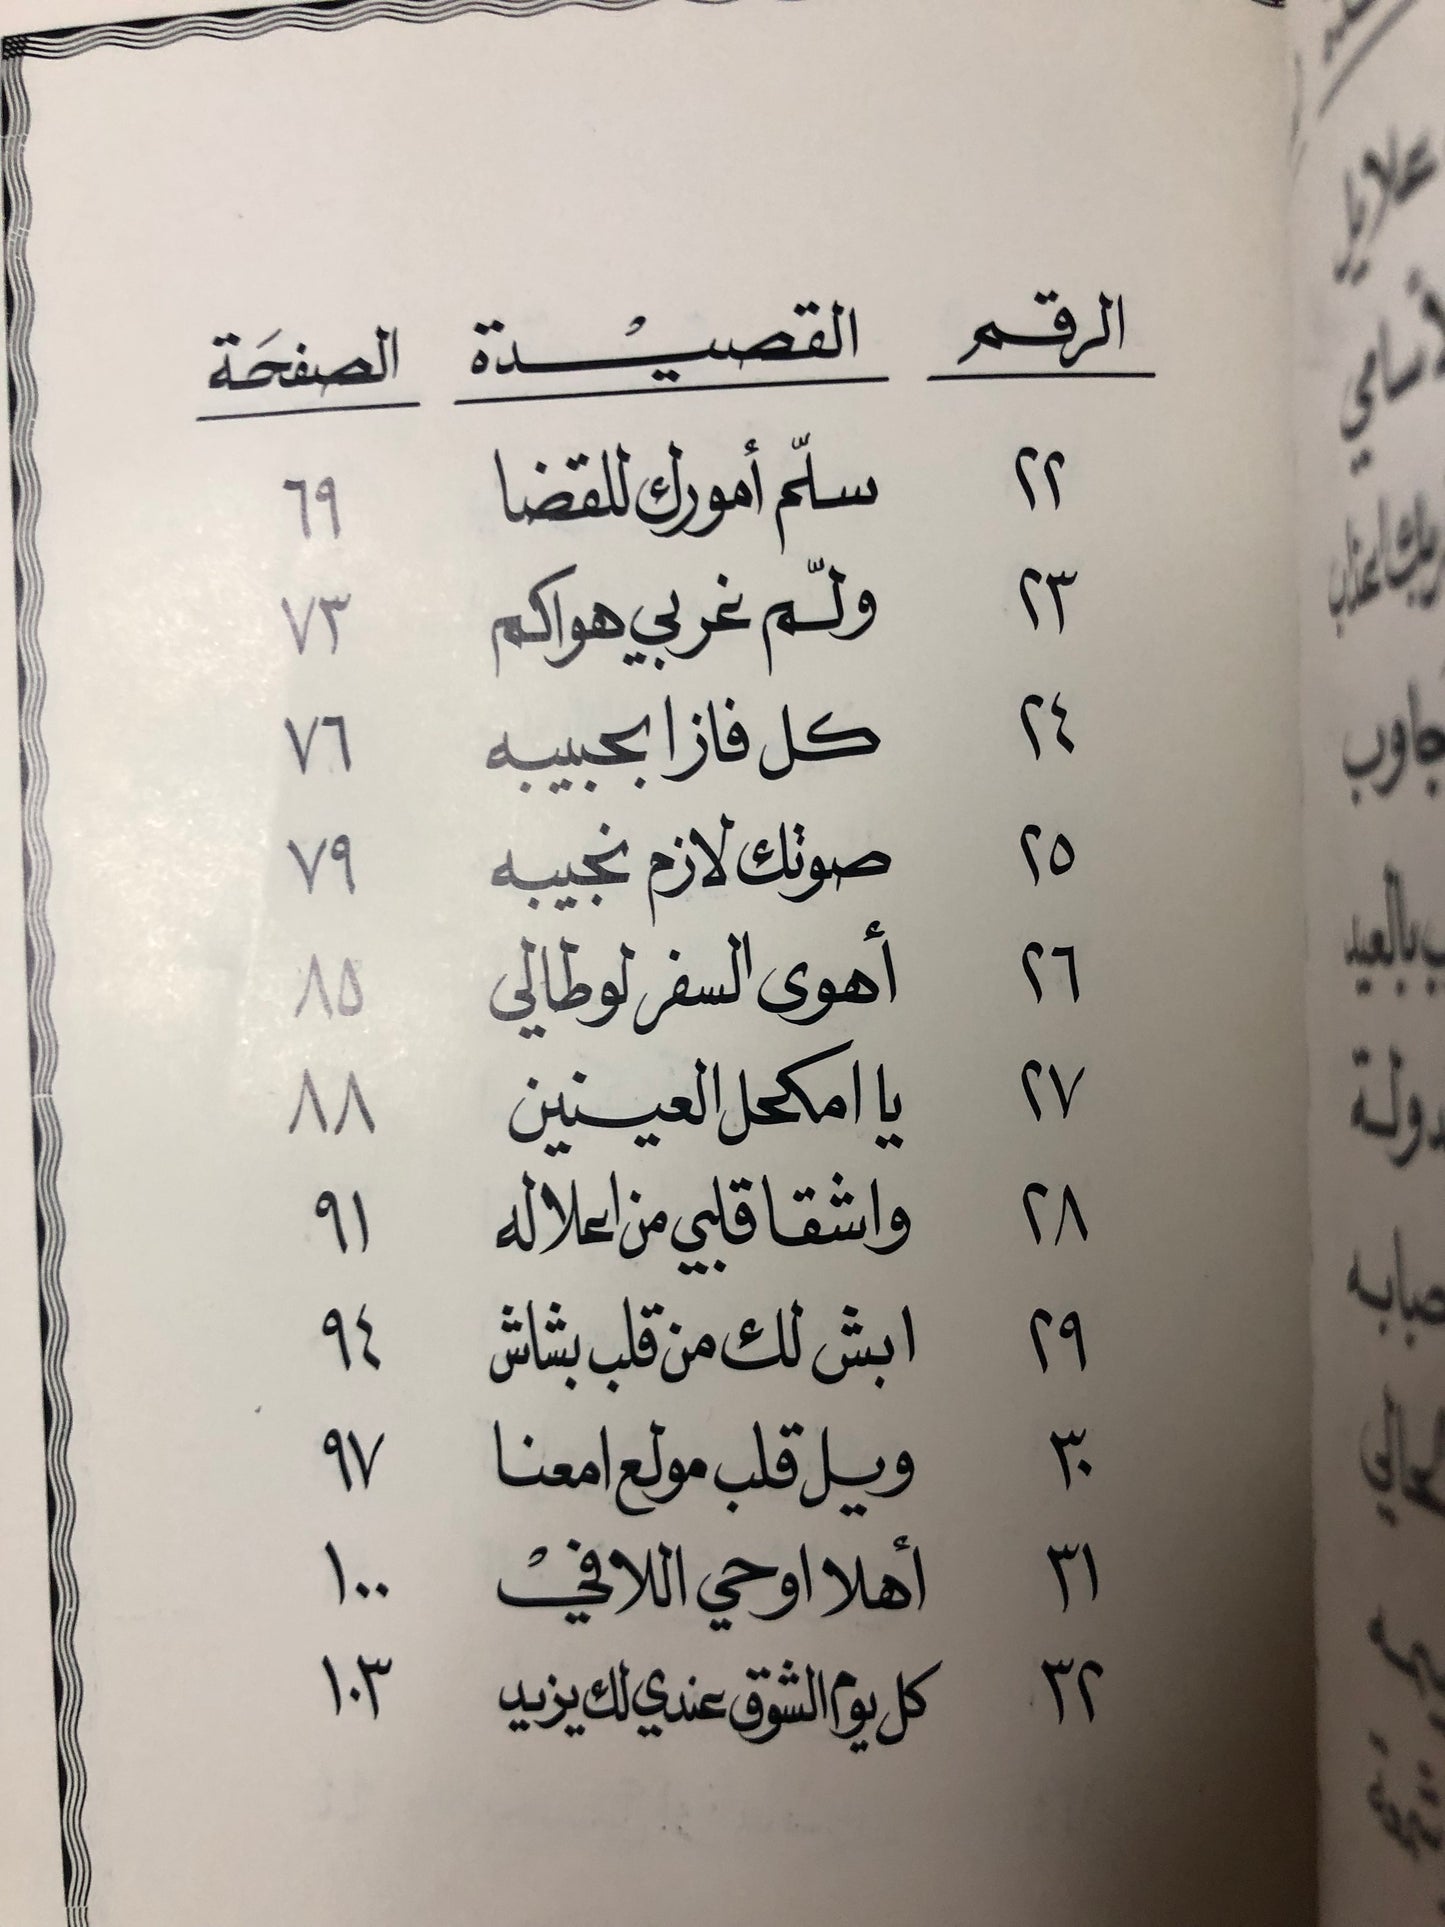 الرقم القصيدة الصفحة
٢٢ سلّم أمورك للقضا ٦٩
٢٣ ولّم غربي هواكم ٧٣
٢٤ كل فازا بحبيبه ٧٦
٢٥ صوتك لازم نجيبه ٧٩
٢٦ أهوى السفر لوطالي ٨٥
٢٧ يا امكحل العينين ٨٨
٢٨ واشقا قلبي من اعلاله ٩١
٢٩ ابش لك من قلب بشاش ٩٤
٣٠ ويل قلب مولع امعنا ٩٧
٣١ أهلا اوحي اللافي ١٠٠
٣٢ كل يوم الشوق عندي لك يزيد ١٠٣
علايل